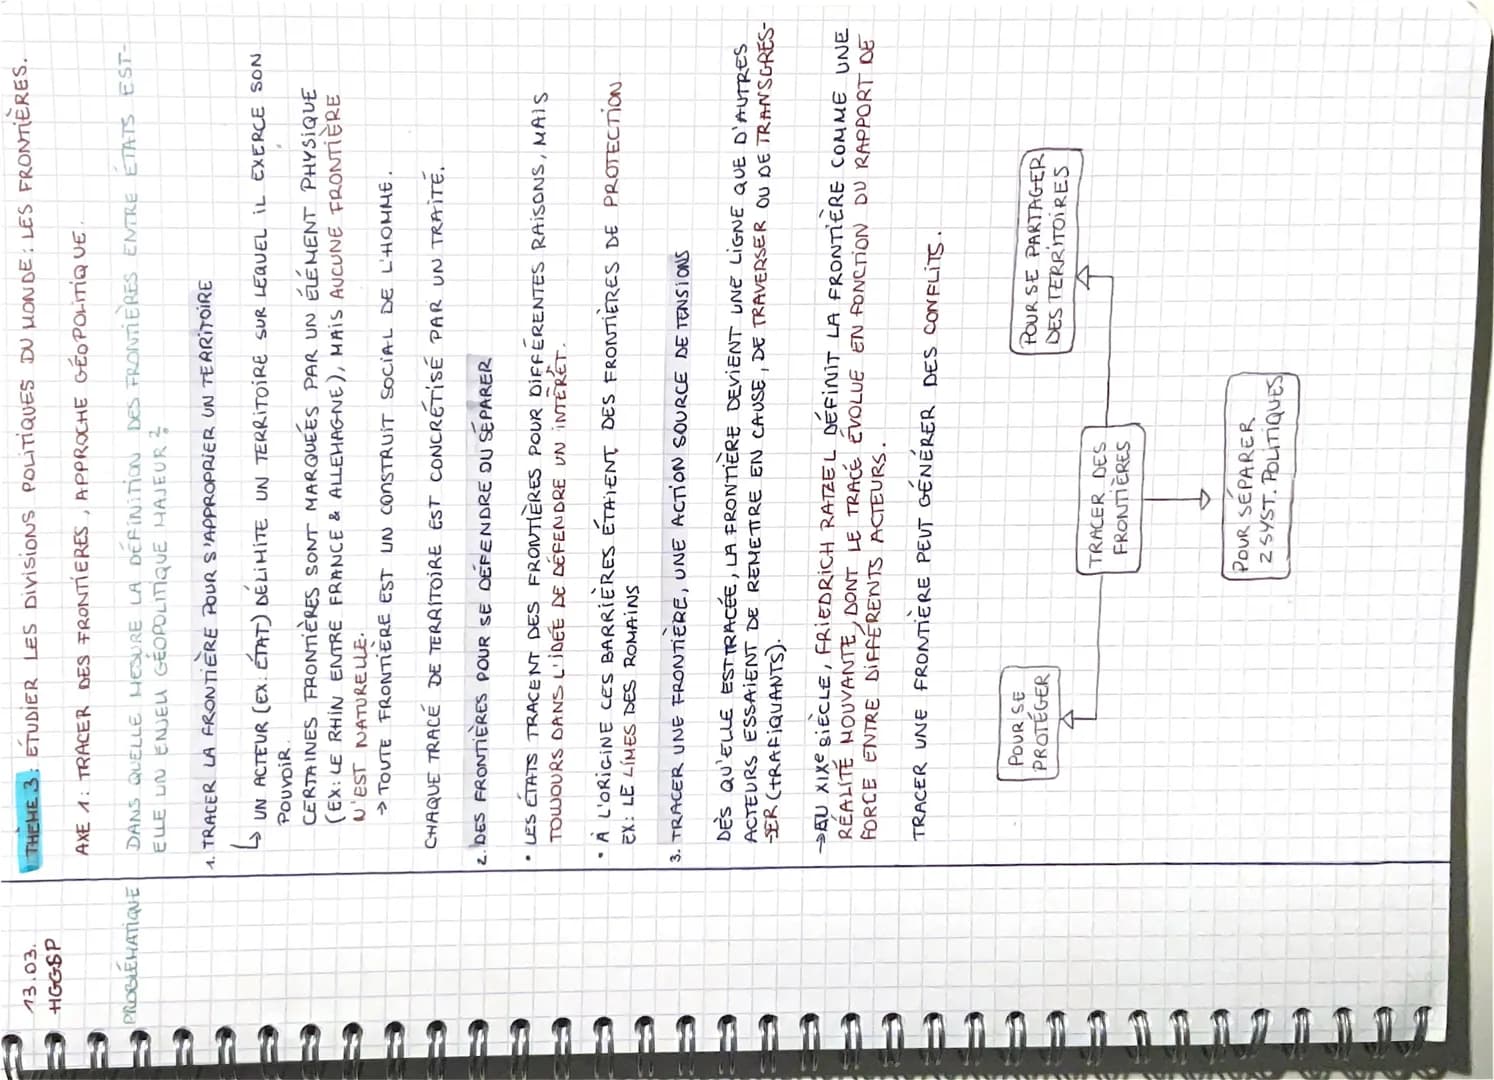 13.03.
HGGSP
THÈME 3: ÉTUDIER LES DIVISIONS POLITIQUES DU MONDE : LES FRONTIÈRES.
AXE 1: TRACER DES FRONTIÈRES, APPROCHE GÉOPOLITIQUE.
PROBLÉMATIQUE
DANS QUELLE MESURE LA DÉFINITION DES FRONTIÈRES ENTRE ÉTATS EST-
ELLE UN ENJEU GÉOPOLITIQUE MAJEUR ?
1. TRACER LA FRONTIÈRE POUR S'APPROPRIER UN TERRITOIRE
↳ UN ACTEUR (EX: ÉTAT) DÉLIMITE UN TERRITOIRE SUR LEQUEL IL EXERCE SON
POUVOIR.
CERTAINES FRONTIÈRES SONT MARQUÉES PAR UN ÉLÉMENT PHYSIQUE
(EX: LE RHIN ENTRE FRANCE & ALLEMAGNE), MAIS AUCUNE FRONTIÈRE
N'EST NATURELLE.
→ TOUTE FRONTIÈRE EST UN CONSTRUIT SOCIAL DE L'HOMME.
CHAQUE TRACÉ DE TERRITOIRE EST CONCRÉTISÉ PAR UN TRAITÉ.
2. DES FRONTIÈRES POUR SE DÉFENDRE OU SÉPARER
• LES ÉTATS TRACENT DES FRONTIÈRES POUR DIFFÉRENTES RAISONS, MAIS
TOUJOURS DANS L'IDÉE DE DÉFENDRE UN INTÉRÊT.
• À L'ORIGINE CES BARRIÈRES ÉTAIENT DES FRONTIÈRES DE PROTECTION
EX: LE LIMES DES ROMAINS
3. TRACER UNE FRONTIÈRE, UNE ACTION SOURCE DE TENSIONS
DÈS QU'ELLE EST TRACÉE, LA FRONTIÈRE DEVIENT UNE LIGNE QUE D'AUTRES
ACTEURS ESSAIENT DE REMETTRE EN CAUSE, DE TRAVERSER OU DE TRANSGRES-
SER (TRAFIQUANTS).
→ AU XIXe SIÈCLE, FRIEDRICH RATZEL DÉFINIT LA FRONTIÈRE COMME UNE
RÉALITÉ MOUVANTE, DONT LE TRACÉ ÉVOLUE EN FONCTION DU RAPPORT DE
FORCE ENTRE DIFFÉRENTS ACTEURS.
TRACER UNE FRONTIÈRE PEUT GÉNÉRER DES CONFLITS.
POUR SE
PROTÉGER
POUR SE PARTAGER
DES TERRITOIRES
TRACER DES
FRONTIÈRES
POUR SÉPARER
2 SYST. POLITIQUES